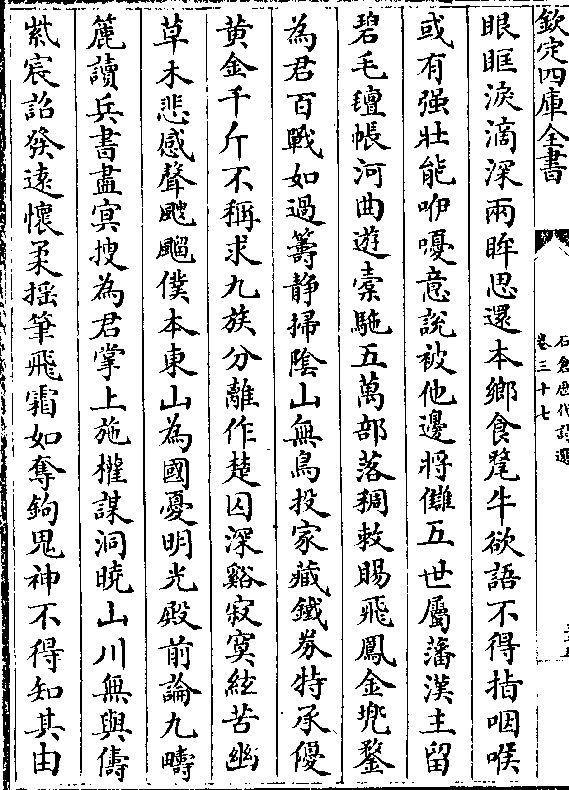 欽定四庫全書
石倉歷代詩選
卷三十七
眼眶淚滴深兩眸思還本鄉食犛牛欲語不得指咽喉
或有强壯能吚嚘意說被他邊將讎五世屬藩漢主留
碧毛氊帳河曲遊橐駞五萬部落稠敕賜飛鳳金兜鍪
為君百戰如過籌静掃陰山無鳥投家藏鐵劵特承優
黄金千斤不稱求九族分離作楚囚深谿寂寞絃苦幽
草木悲感聲颼飀僕本東山為國憂明光殿前論九疇
簏讀兵書盡冥搜為君掌上施權謀洞曉山川無與儔
紫宸詔發遠懷柔揺筆飛霜如奪鉤鬼神不得知其由